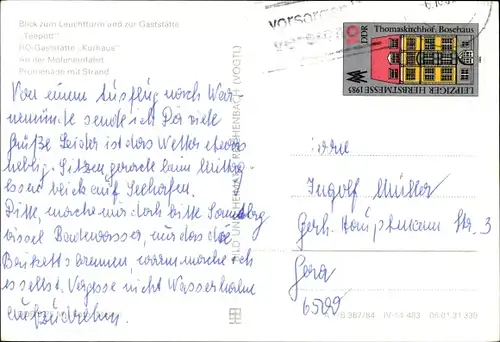 Blick zum Leuchtturm und zur Gaststätte
"Teepott"
HO-Gaststätte „Kurhaus"
An der Moleneinfahrt
Promenade mit Strand
vorsorgen
DDR
Thomaskirchhof, Bosehaus
LEIPZIGER HERBSTMESSE 1985
Von einem Ausflug nach War-
nemünde sende ich Dir viele
Grüße. Leider ist das Wetter etwas
neblig. Sitzen gerade beim Mittag-
essen Blick auf Seehafen.
Bitte, mache mir doch bitte Sonnabend
bissel Badewasser, nur das die
Briketts brennen, warm mache ich
es selbst. Vergesse nicht Wasserhahn
aufzudrehen.
BILD UND HEIMAT REICHENBACH (VOGTL)
Herrn
Ingolf Müller
Gerh. Hauptmann Str. 3
Gera
6500
387/84 IV-14-483 06 01 31 330